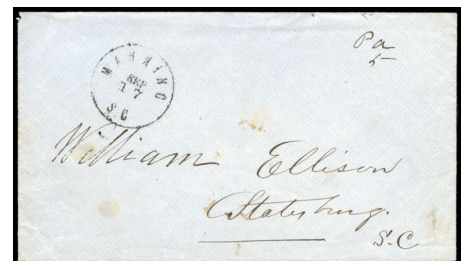 Pa
5
MANNING
SEP
17
S.C
William Ellison
Statesburg.
S.C